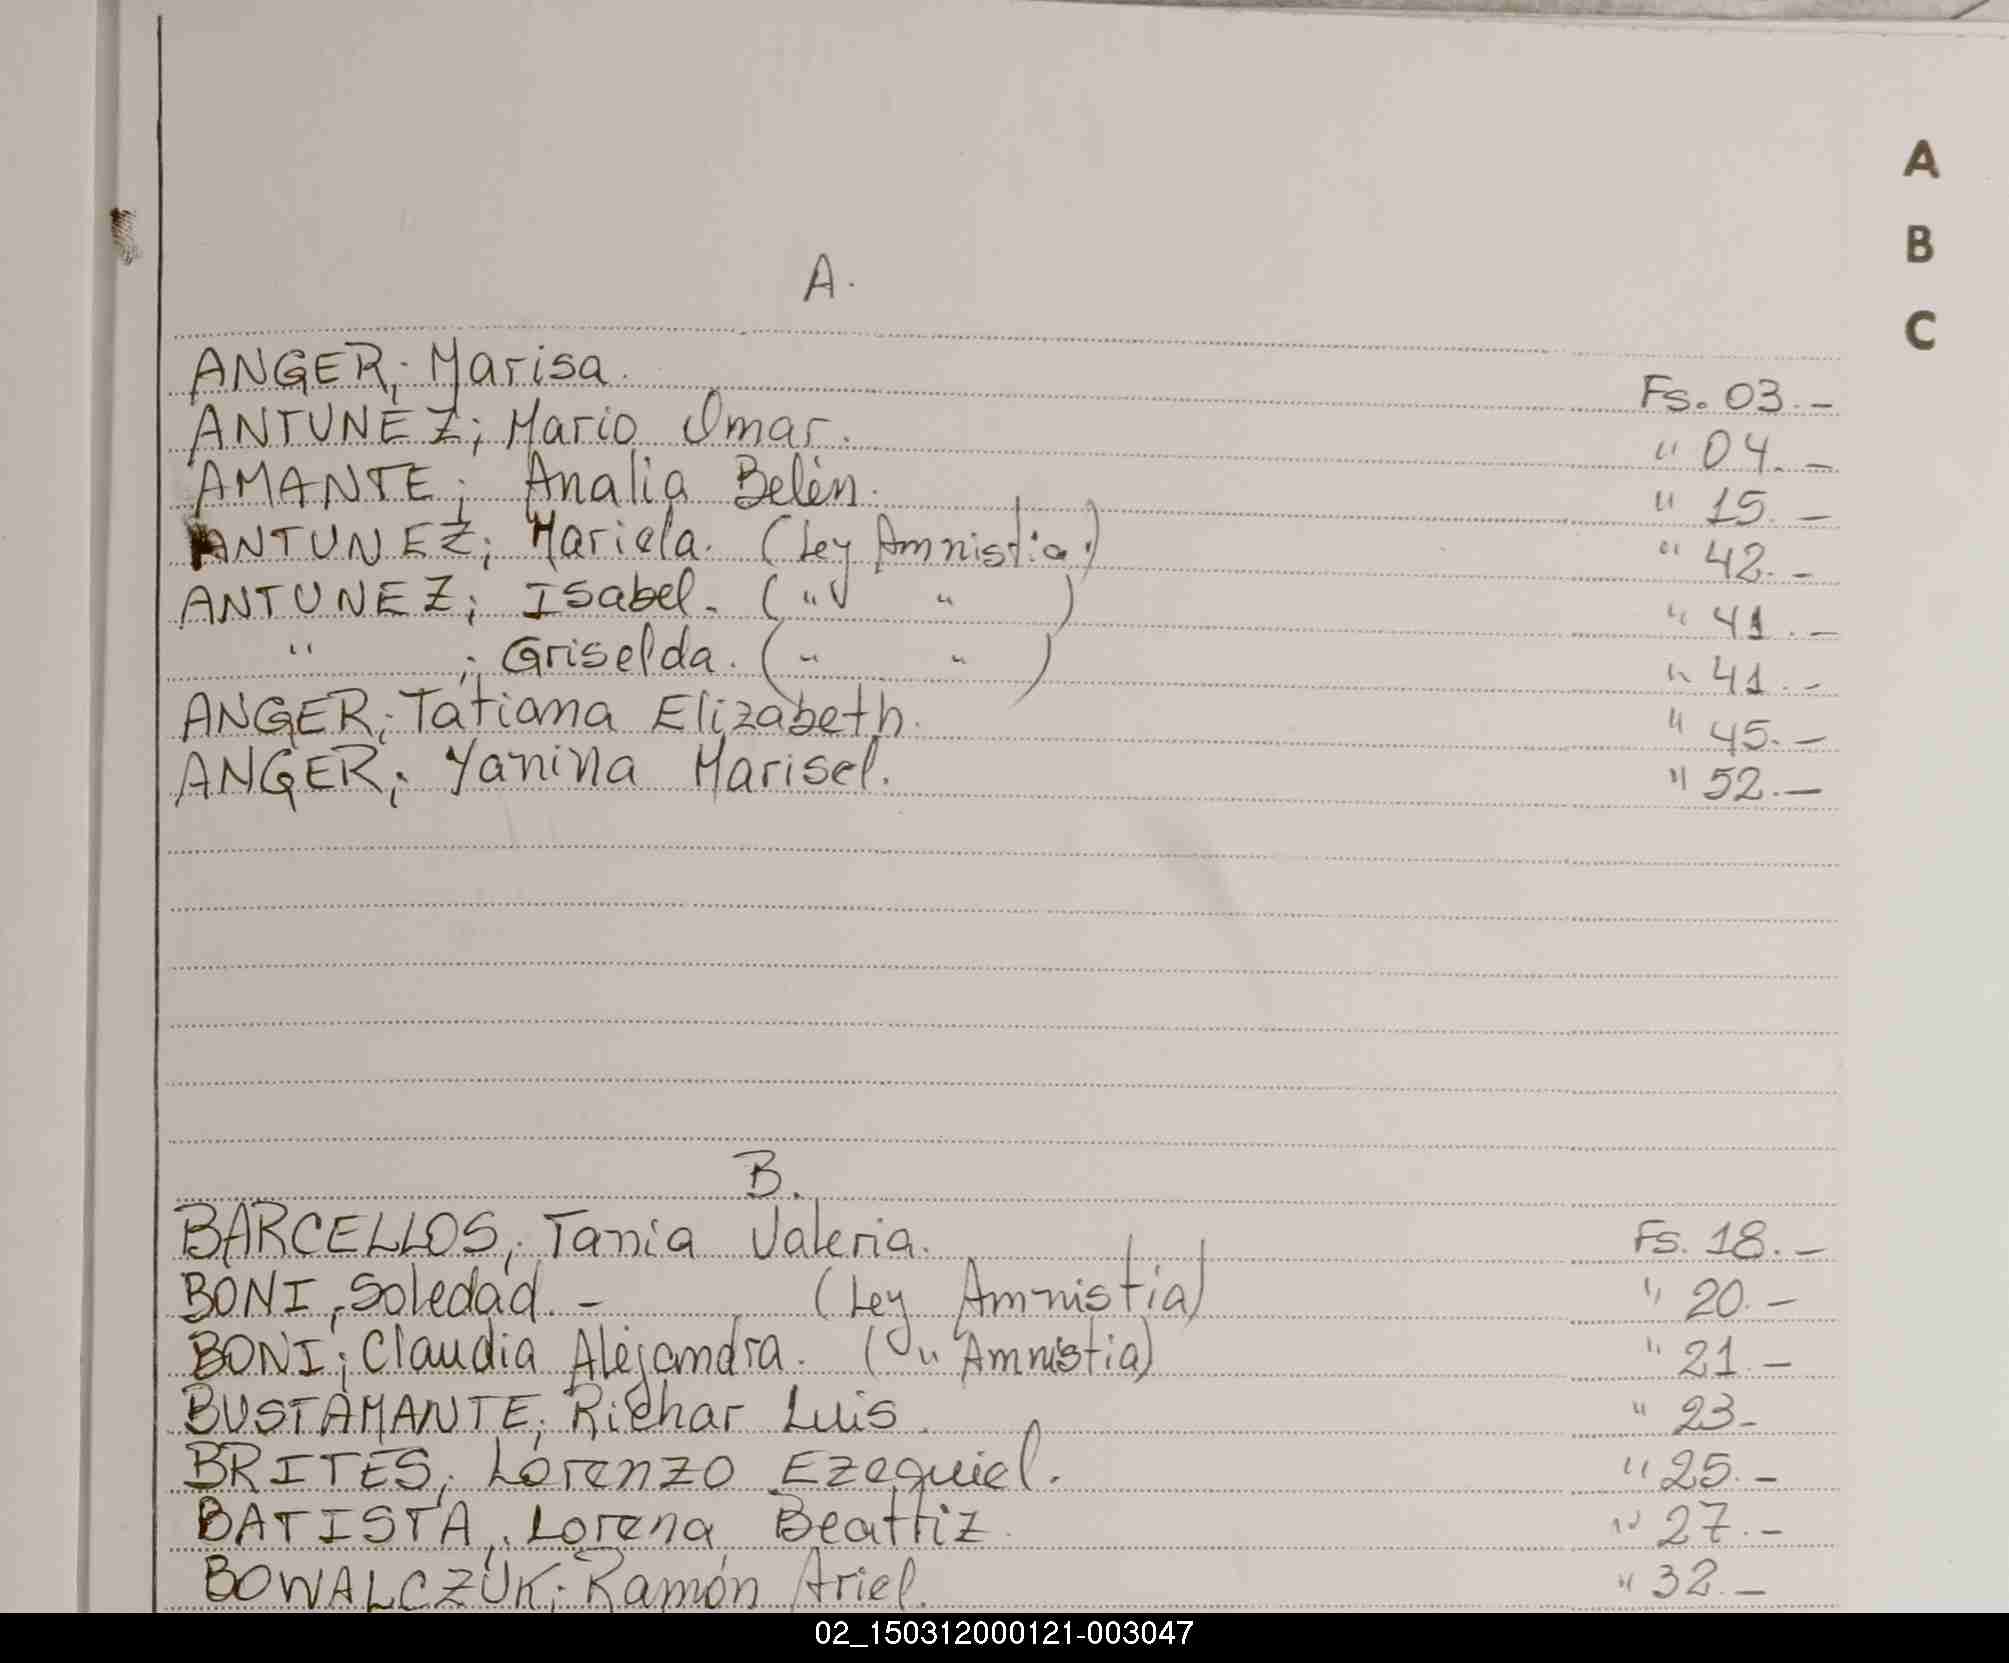 A
B
C
A.
ANGER; Marisa. Fs. 03.-
ANTUNEZ; Mario Omar. " 04.-
AMANTE; Analia Belén. " 15.-
ANTUNEZ; Mariela. (Ley Amnistia.) " 42.-
ANTUNEZ; Isabel. ( " " ) " 41.-
" ; Griselda. ( " " ) " 41.-
ANGER; Tatiana Elizabeth. " 45.-
ANGER; Yanina Marisel. " 52.-
B.
BARCELLOS; Tania Valeria. Fs. 18.-
BONI; Soledad.- (Ley Amnistia) " 20.-
BONI; Claudia Alejandra. ( " Amnistia) " 21.-
BUSTAMANTE; Richar Luis. " 23-
BRITES; Lorenzo Ezequiel. " 25.-
BATISTA; Lorena Beatriz. " 27.-
BOWALCZUK; Ramón Ariel. " 32.-
02_150312000121-003047